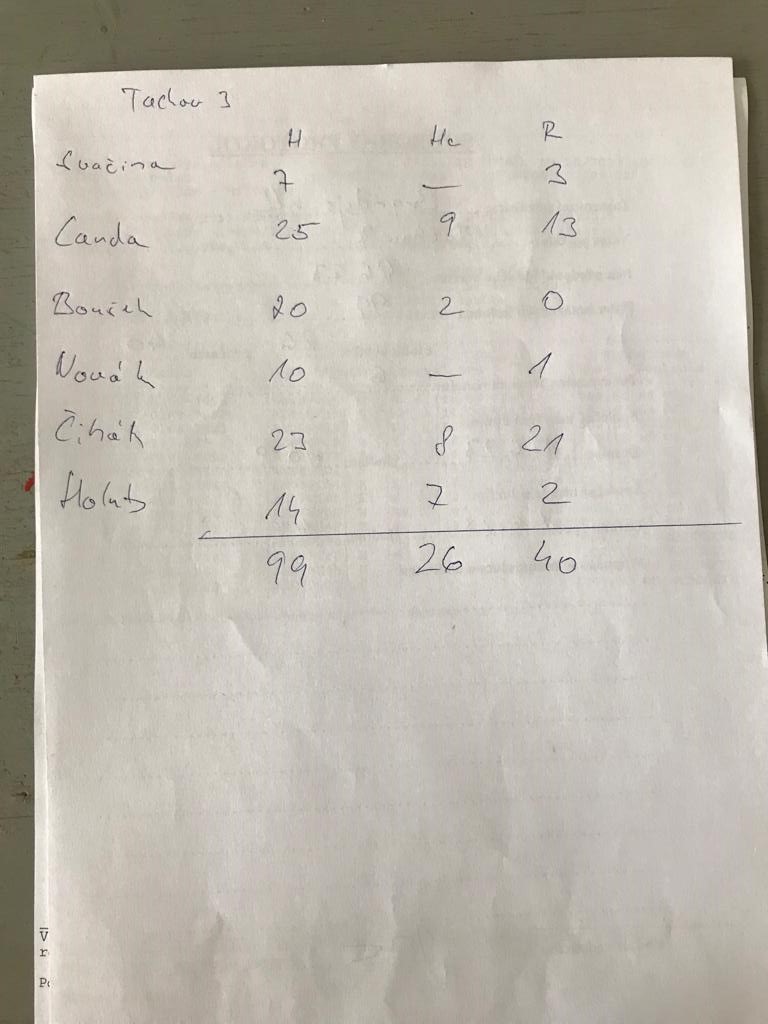 Tachov 3
H Hc R
Svačina 7 — 3
Canda 25 9 13
Bouček 20 2 0
Novák 10 — 1
Čihák 23 8 21
Holub 14 7 2
99 26 40